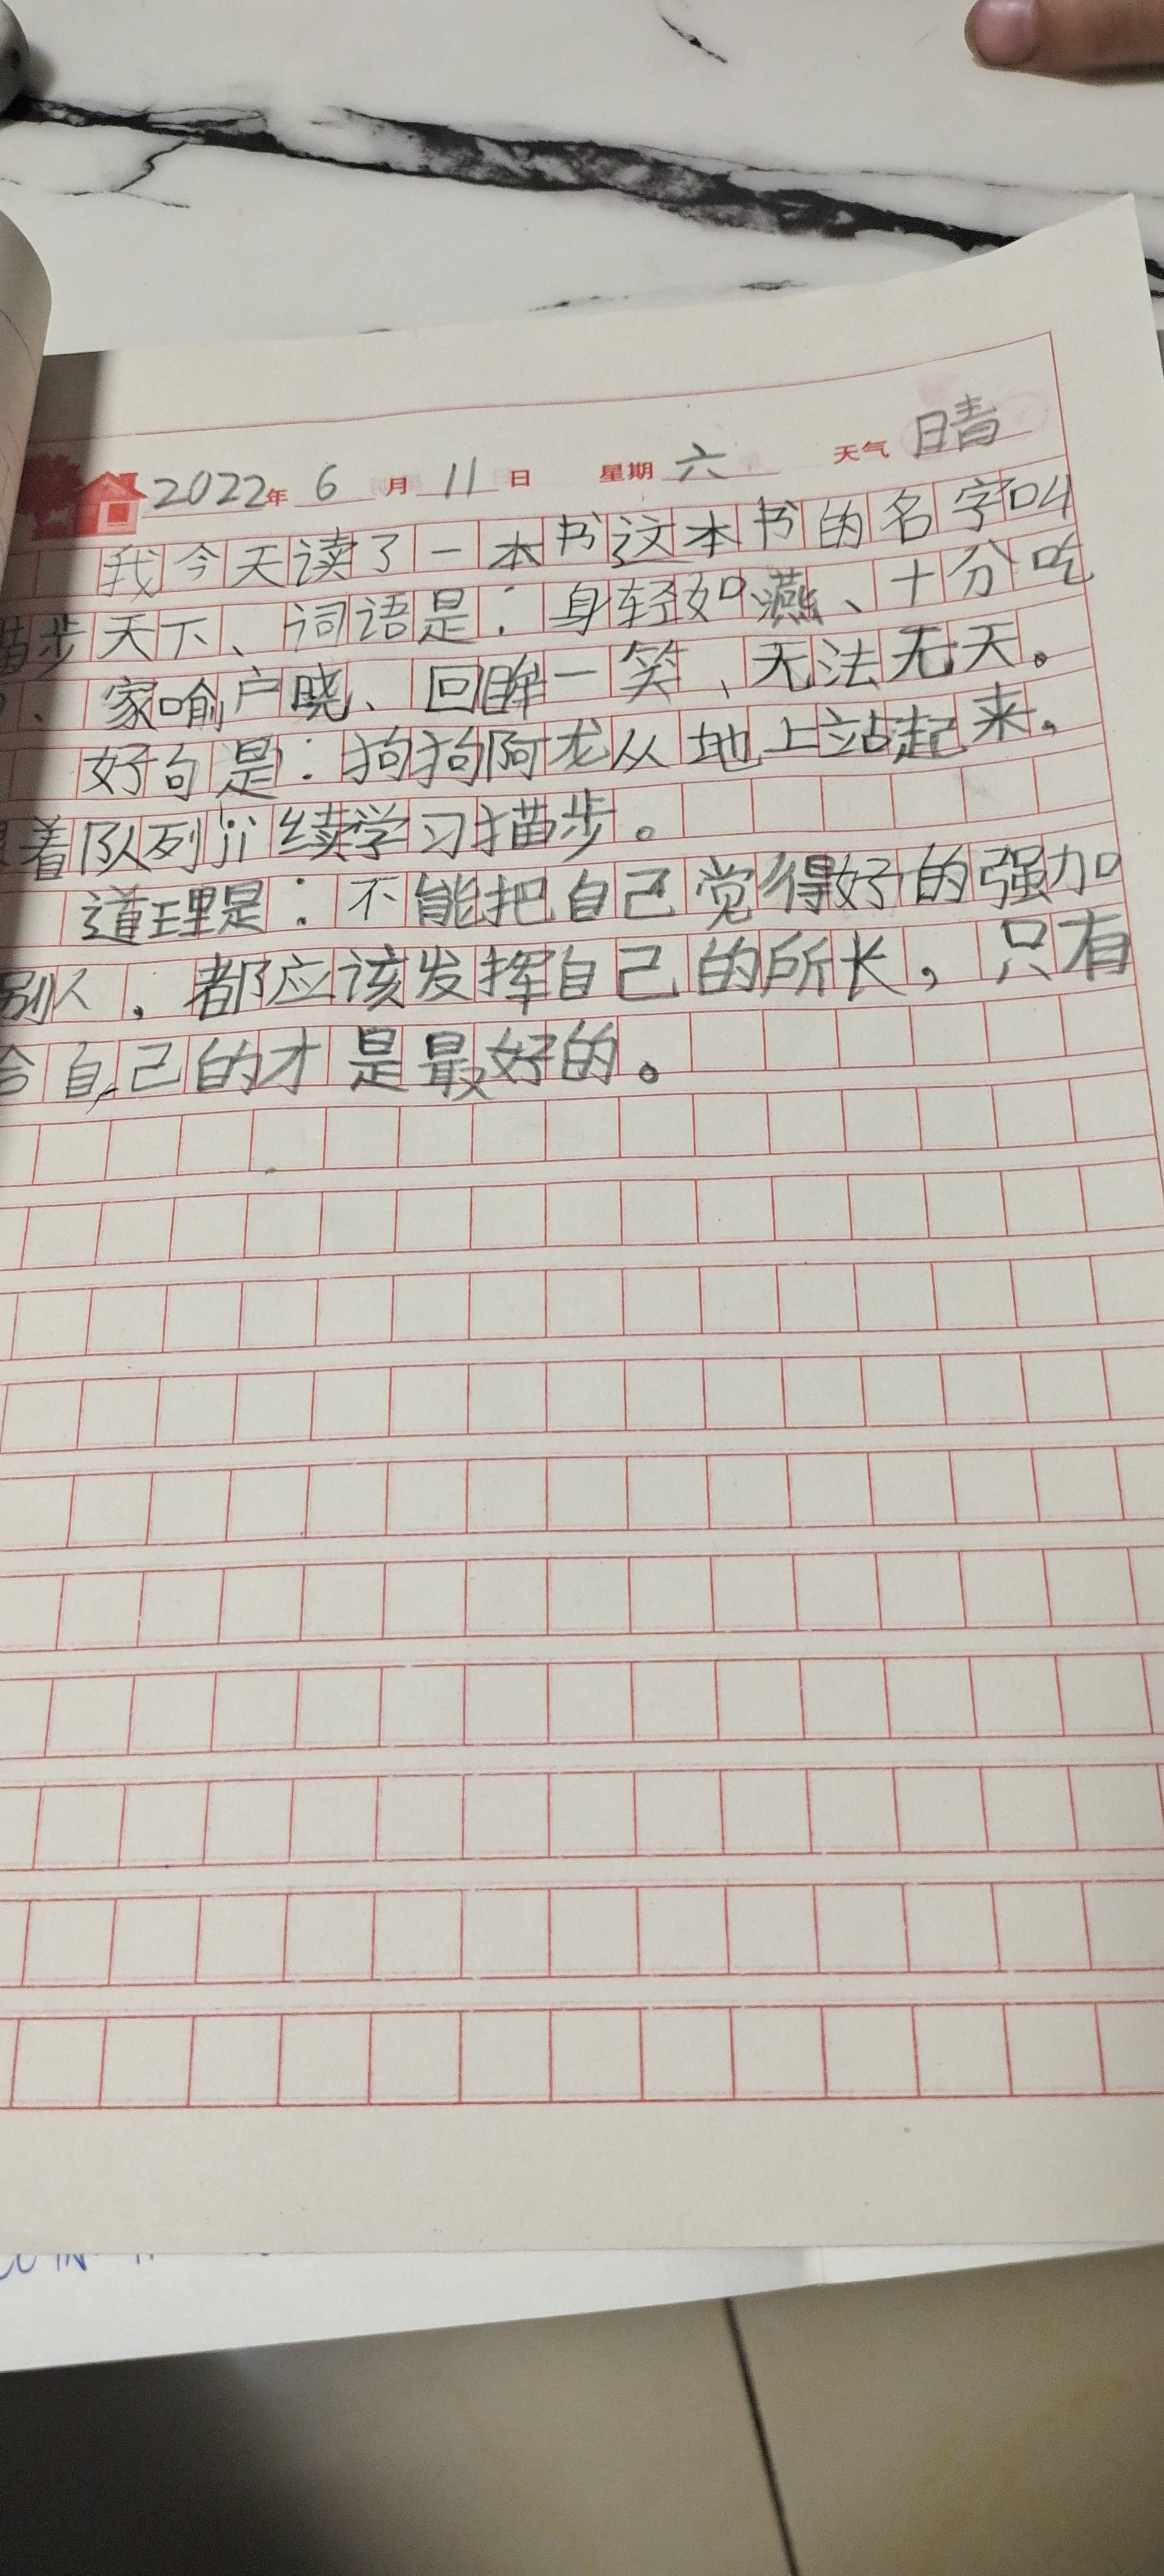 2022年 6月 11日 星期 六 天气 晴
我今天读了一本书这本书的名字叫
猫步天下、词语是：身轻如燕、十分吃
、家喻户晓、回眸一笑、无法无天。
好句是：狗狗阿龙从地上站起来。
着队列jì续学习猫步。
道理是：不能把自己觉得好的强加
别人，都应该发挥自己的所长，只有
合自己的才是最好的。